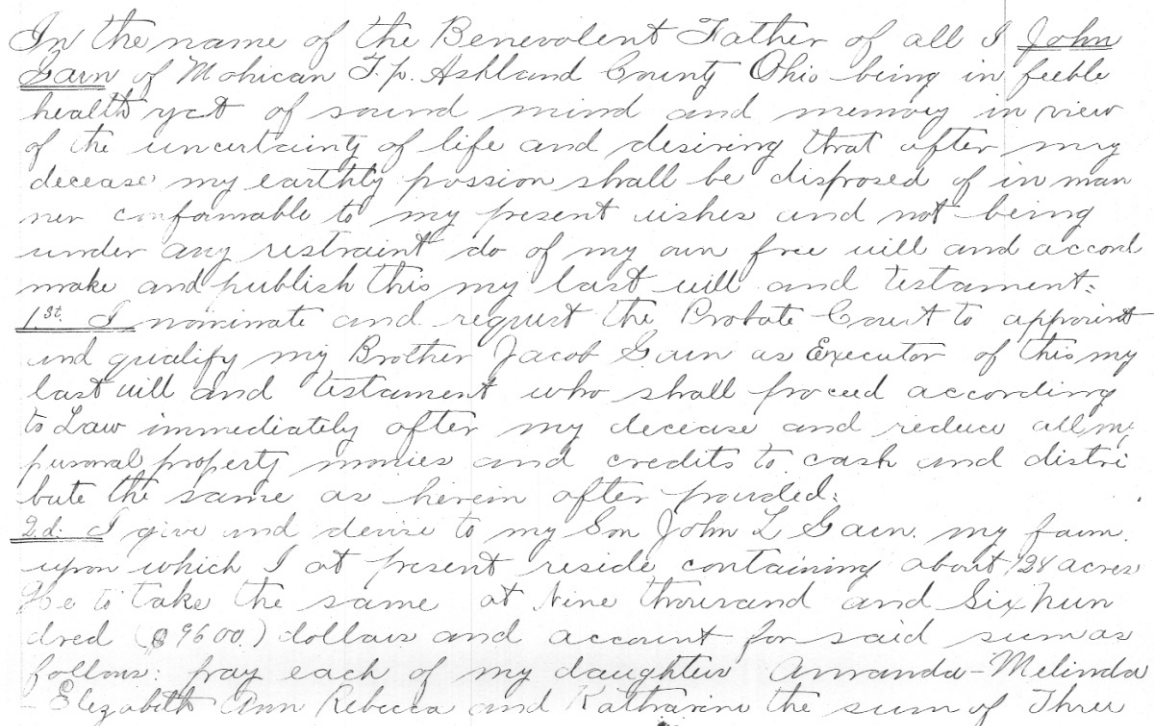 In the name of the Benevolent Father of all I John
Garn of Mohican T.p. Ashland County Ohio being in feeble
health yet of sound mind and memory in view
of the uncertainty of life and desiring that after my
decease my earthly possion shall be disposed of in man
ner conformable to my present wishes and not being
under any restraint do of my own free will and accord
make and publish this my last will and testament:
1st. I nominate and request the Probate Court to appoint
and qualify my Brother Jacob Garn as Executor of this my
last will and testament who shall proceed according
to Law immediately after my decease and reduce all my
personal property monies and credits to cash and distri
bute the same as herein after provided:
2d. I give and devise to my Son John L Garn. my farm.
upon which I at present reside containing about 124 acres
He to take the same at Nine thousand and Six hun
dred ($9600.) dollars and account for said sum as
follows: pay each of my daughters Amanda - Melinda
- Elizabeth Ann Rebecca and Katharine the sum of Three